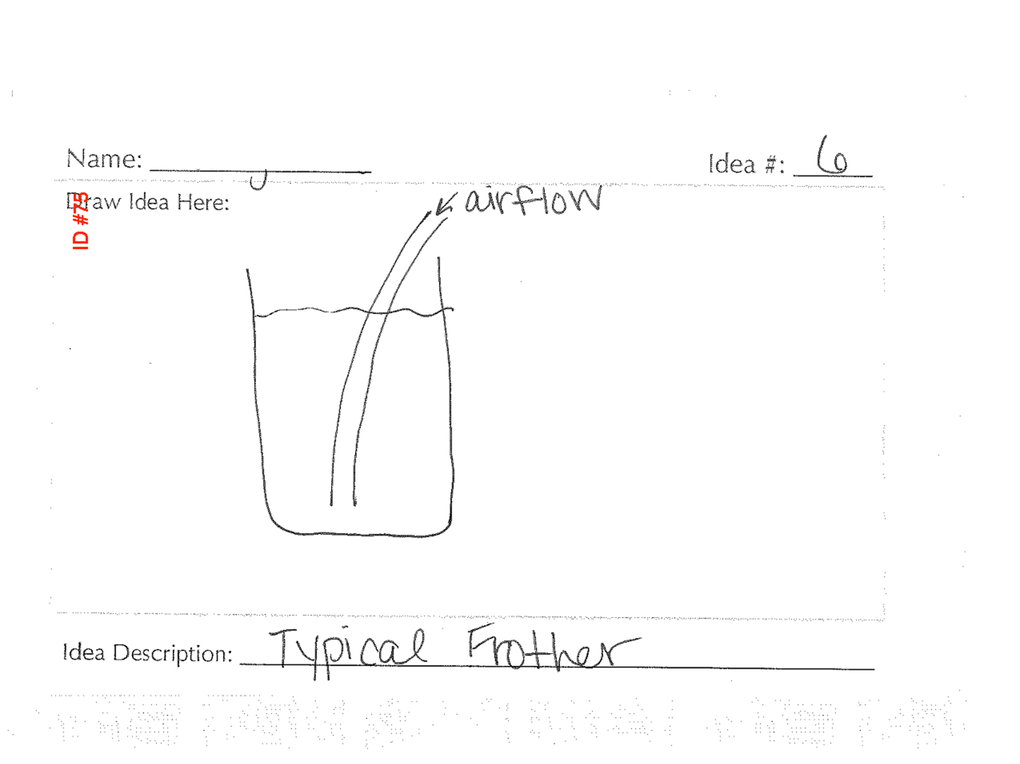 Name:
Idea #: 6
Draw Idea Here:
ID #75
airflow
Idea Description: Typical Frother